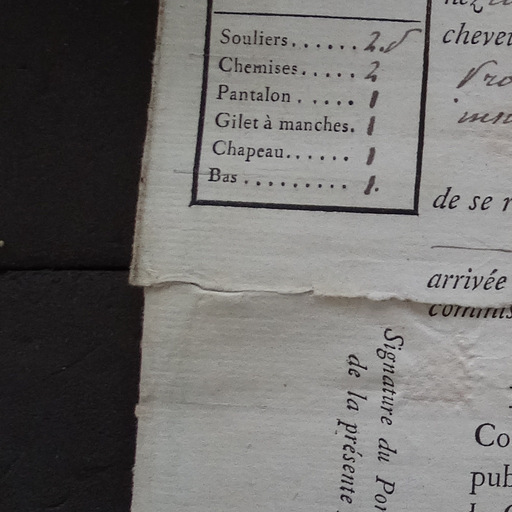 Souliers...... 2.
Chemises..... 2
Pantalon..... 1
Gilet à manches. 1
Chapeau...... 1
Bas.......... 1.
chever
de se r
arrivée
commis
Signature du Por
de la présente
Co
pub